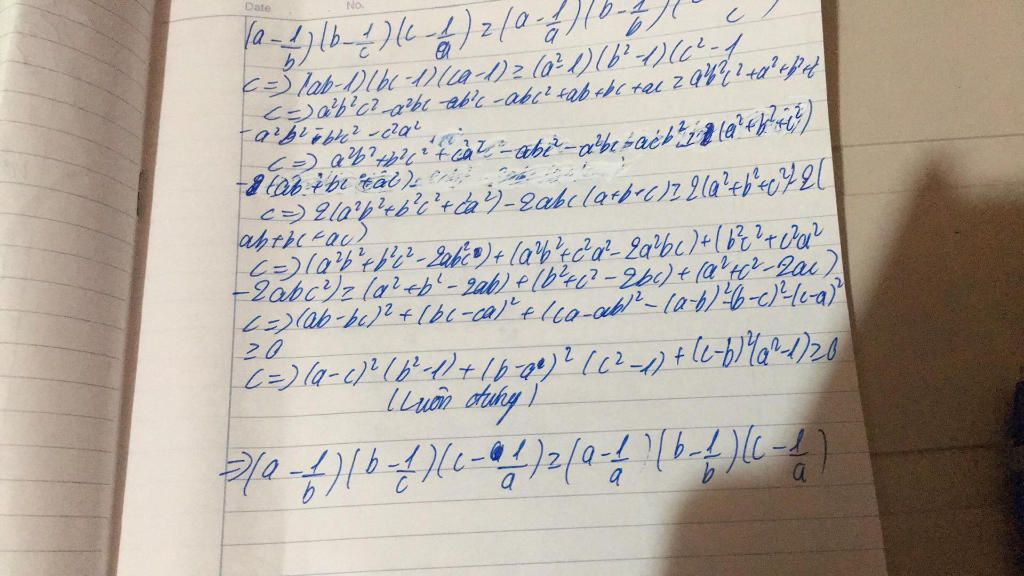 Date No.
(a - 1/b)(b - 1/c)(c - 1/a) ≥ (a - 1/a)(b - 1/b)(c
(=) (ab-1)(bc-1)(ca-1) ≥ (a²-1)(b²-1)(c²-1
(=) a²b²c² - a²bc - ab²c - abc² + ab + bc + ac ≥ a²b²c² + a² + b² + c
- a²b² - b²c² - c²a²
(=) a²b² + b²c² + ca² - abc² - a²bc - acb² ≥ (a² + b² + c²)
- (ab + bc + ac)
(=) 2(a²b² + b²c² + ca²) - 2abc(a+b+c) ≥ 2(a²+b²+c²) - 2(
ab+bc+ac)
(=) (a²b² + b²c² - 2ab²c) + (a²b² + c²a² - 2a²bc) + (b²c² + c²a²
- 2abc²) ≥ (a² + b² - 2ab) + (b² + c² - 2bc) + (a² + c² - 2ac)
(=) (ab-bc)² + (bc-ca)² + (ca-ab)² - (a-b)² - (b-c)² - (c-a)²
≥ 0
(=) (a-c)²(b²-1) + (b-a)²(c²-1) + (c-b)²(a²-1) ≥ 0
(Luôn đúng)
=> (a - 1/b)(b - 1/c)(c - 1/a) ≥ (a - 1/a)(b - 1/b)(c - 1/a)